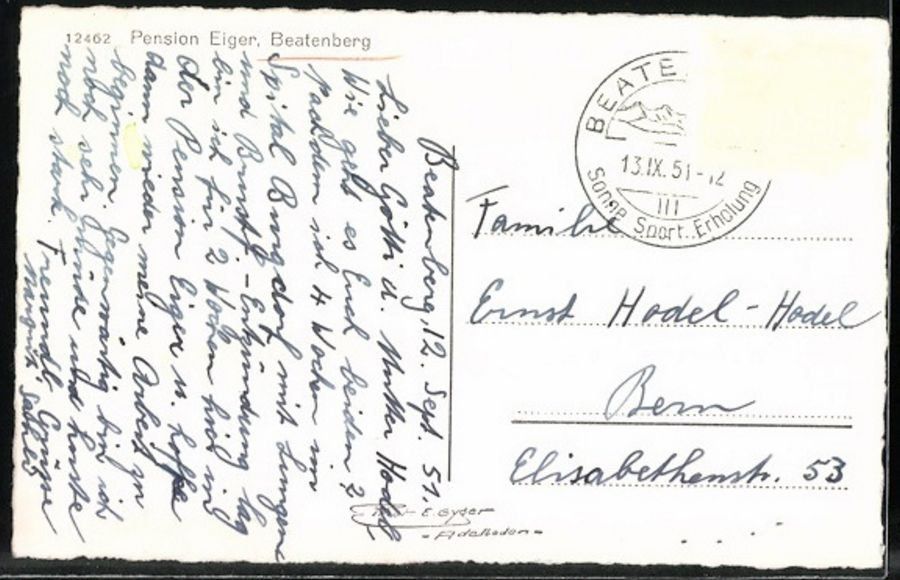 12462 Pension Eiger, Beatenberg
Beatenberg, 12. Sept. 51.
Lieber Götti u. Mutter Hodel
Wie geht es Euch beiden?
Nachdem ich 4 Wochen im
Spital Burgdorf mit Lungen
und Brustf.-Entzündung lag
bin ich für 2 Wochen hier in
der Pension Eiger u. hoffe
dann wieder meine Arbeit zu
beginnen. Gegenwärtig bin ich
noch sehr müde und huste
noch stark. Freundl. Grüsse
Margrit
BEATE
13.IX.51-12
III
Sonne Sport Erholung
Familie
Ernst Hodel-Hodel
Bern
Elisabethenstr. 53
E. Gyger
-Adelboden-